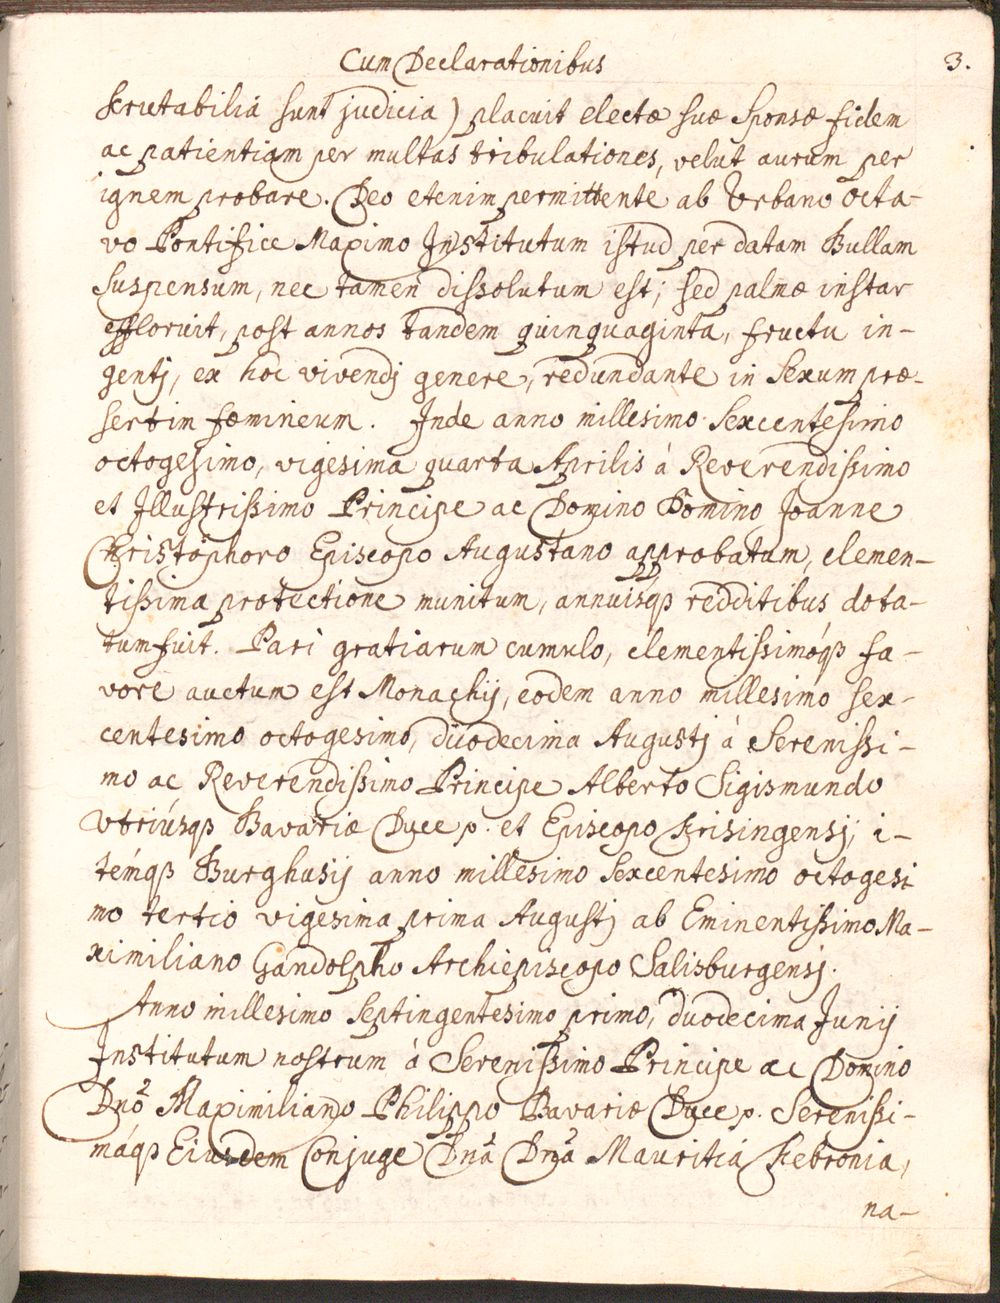 Cum Declarationibus
3.
scrutabilia sunt judicia) placuit electæ suæ Sponsæ fidem
ac patientiam per multas tribulationes, velut aurum per
ignem probare. Deo etenim permittente ab Urbano Octa-
vo Pontifice Maximo Institutum istud per datam Bullam
Suspensum, nec tamen dissolutum est; sed palmæ instar
effloruit, post annos tandem quinquaginta, fructu in-
gentj, ex hoc vivendj genere, redundante in Sexum præ-
sertim fœmineum. Inde anno millesimo Sexcentesimo
octogesimo, vigesima quarta Aprilis á Reverendissimo
et Illustrissimo Principe ac Domino Domino Joanne
Christophoro Episcopo Augustano approbatum, clemen-
tissima protectione munitum, annuisqß redditibus dota-
tum fuit. Pari gratiarum cumulo, clementissimóqß fa-
vore auctum est Monachij, eodem anno millesimo sex-
centesimo octogesimo, duodecima Augustj à Serenissi-
mo ac Reverendissimo Principe Alberto Sigismundo
Vtriúsqß Bavariæ Duce p. et Episcopo Frisingensj, i-
témqß Burghusij anno millesimo Sexcentesimo octogesi
mo tertio vigesima prima Augustj ab Eminentissimo Ma-
ximiliano Gandolpho Archiepiscopo Salisburgensj.
Anno millesimo Septingentesimo primo, duodecima Junij
Institutum nostrum á Serenissimo Principe ac Domino
Dnõ Maximiliano Philippo Bavariæ Duce p. Serenissi-
máqß Eiusdem Conjuge Dnã Dnã Mauritiá Febronia,
na-